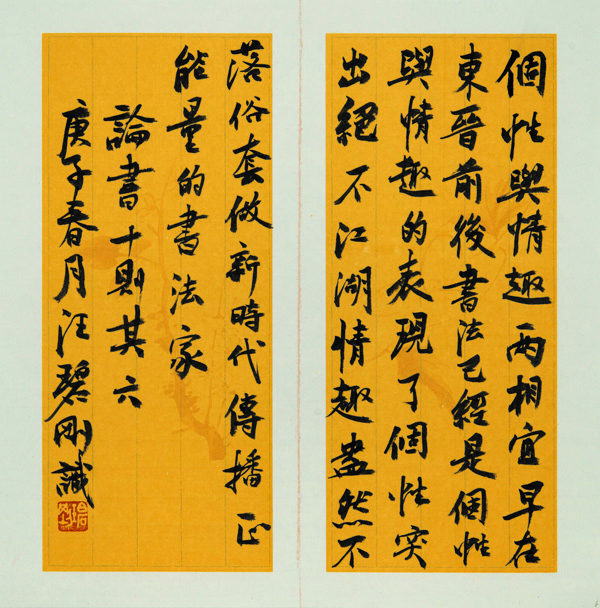 個性與情趣兩相宜早在
東晉前後書法已經是個性
與情趣的表現了個性突
出絕不江湖情趣盎然不
落俗套做新時代傳播正
能量的書法家
論書十則其六
庚子春月汪碧剛識